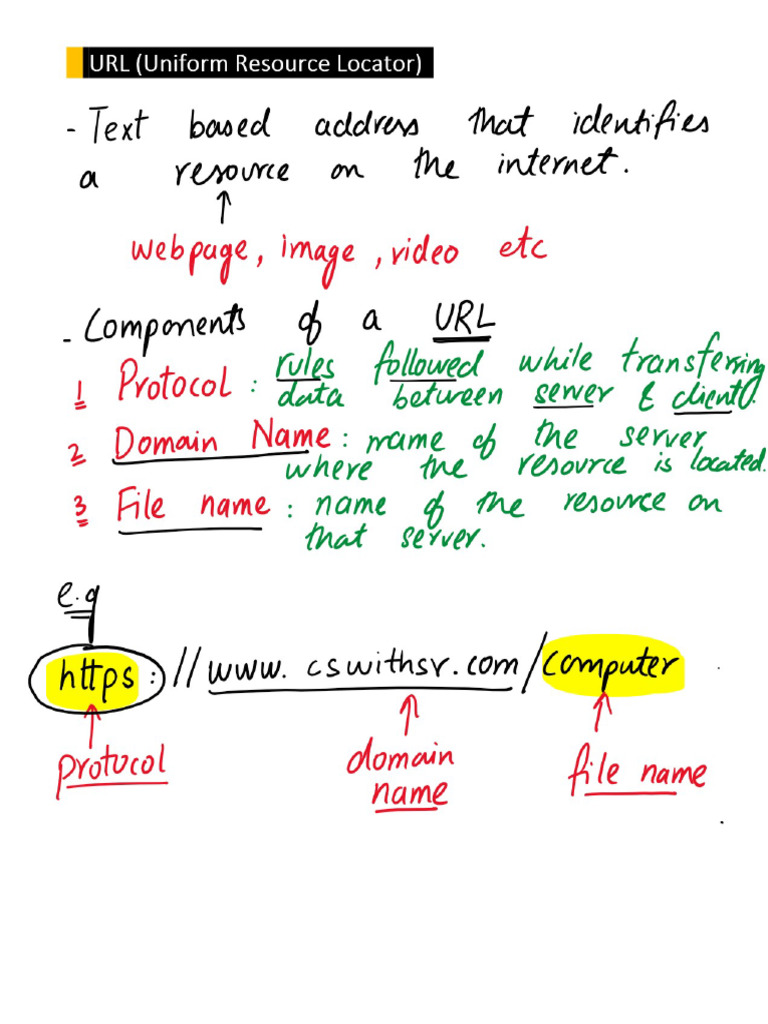 URL (Uniform Resource Locator)
- Text based address that identifies
a resource on the internet.
↑
webpage, image, video etc
- Components of a URL
1 Protocol : rules followed while transferring
data between server & client.
2 Domain Name : name of the server
where the resource is located.
3 File name : name of the resource on
that server.
e.g
https://www.cswithsr.com/computer
protocol
domain
name
file name